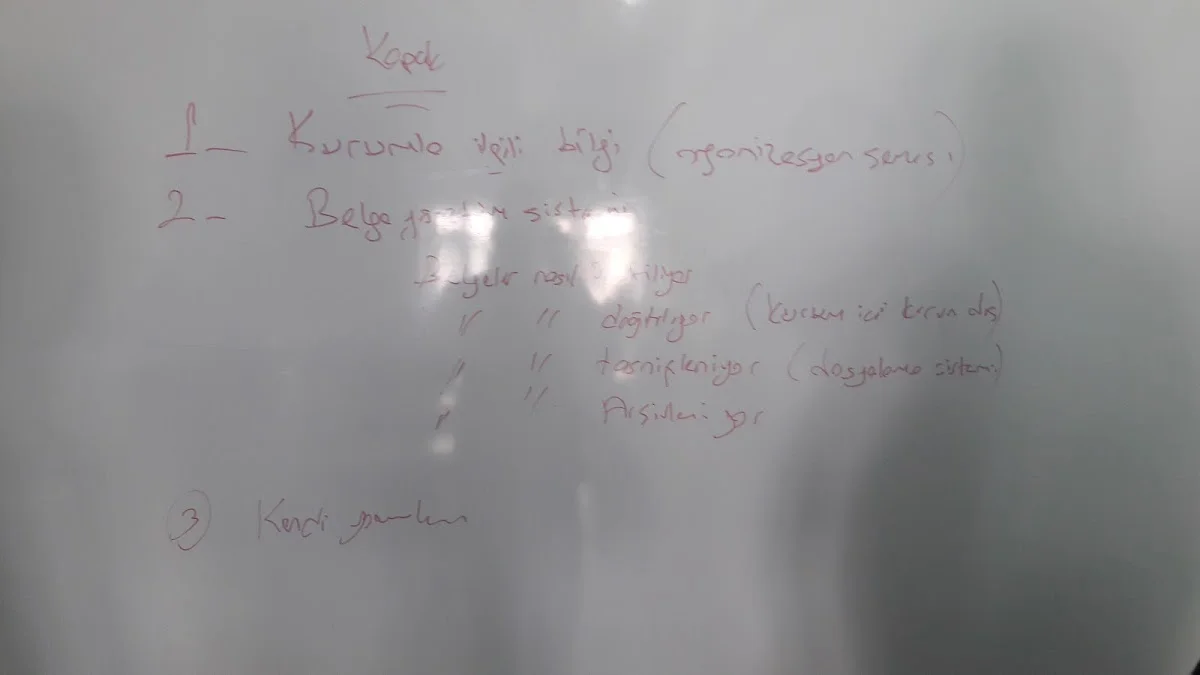 Kapak
1- Kurumla ilgili bilgi (organizasyon şeması)
2- Belge yönetim sistemi
Belgeler nasıl
" " dağıtılıyor (kurum içi kurum dışı)
" " tasnifleniyor (dosyalama sistemi)
" " Arşivleniyor
3 Kendi yorumların